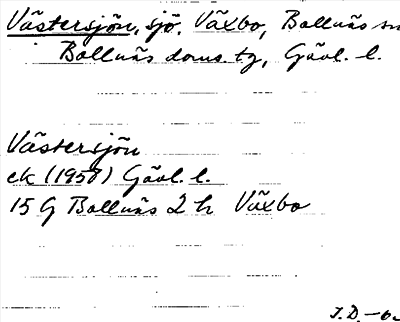 Västersjön, sjö. Växbo, Bollnäs sn
Bollnäs doms. tg, Gävl. l.
Västersjön
ek (1957) Gävl. l.
15 G Bollnäs 2 h Växbo
J.D.